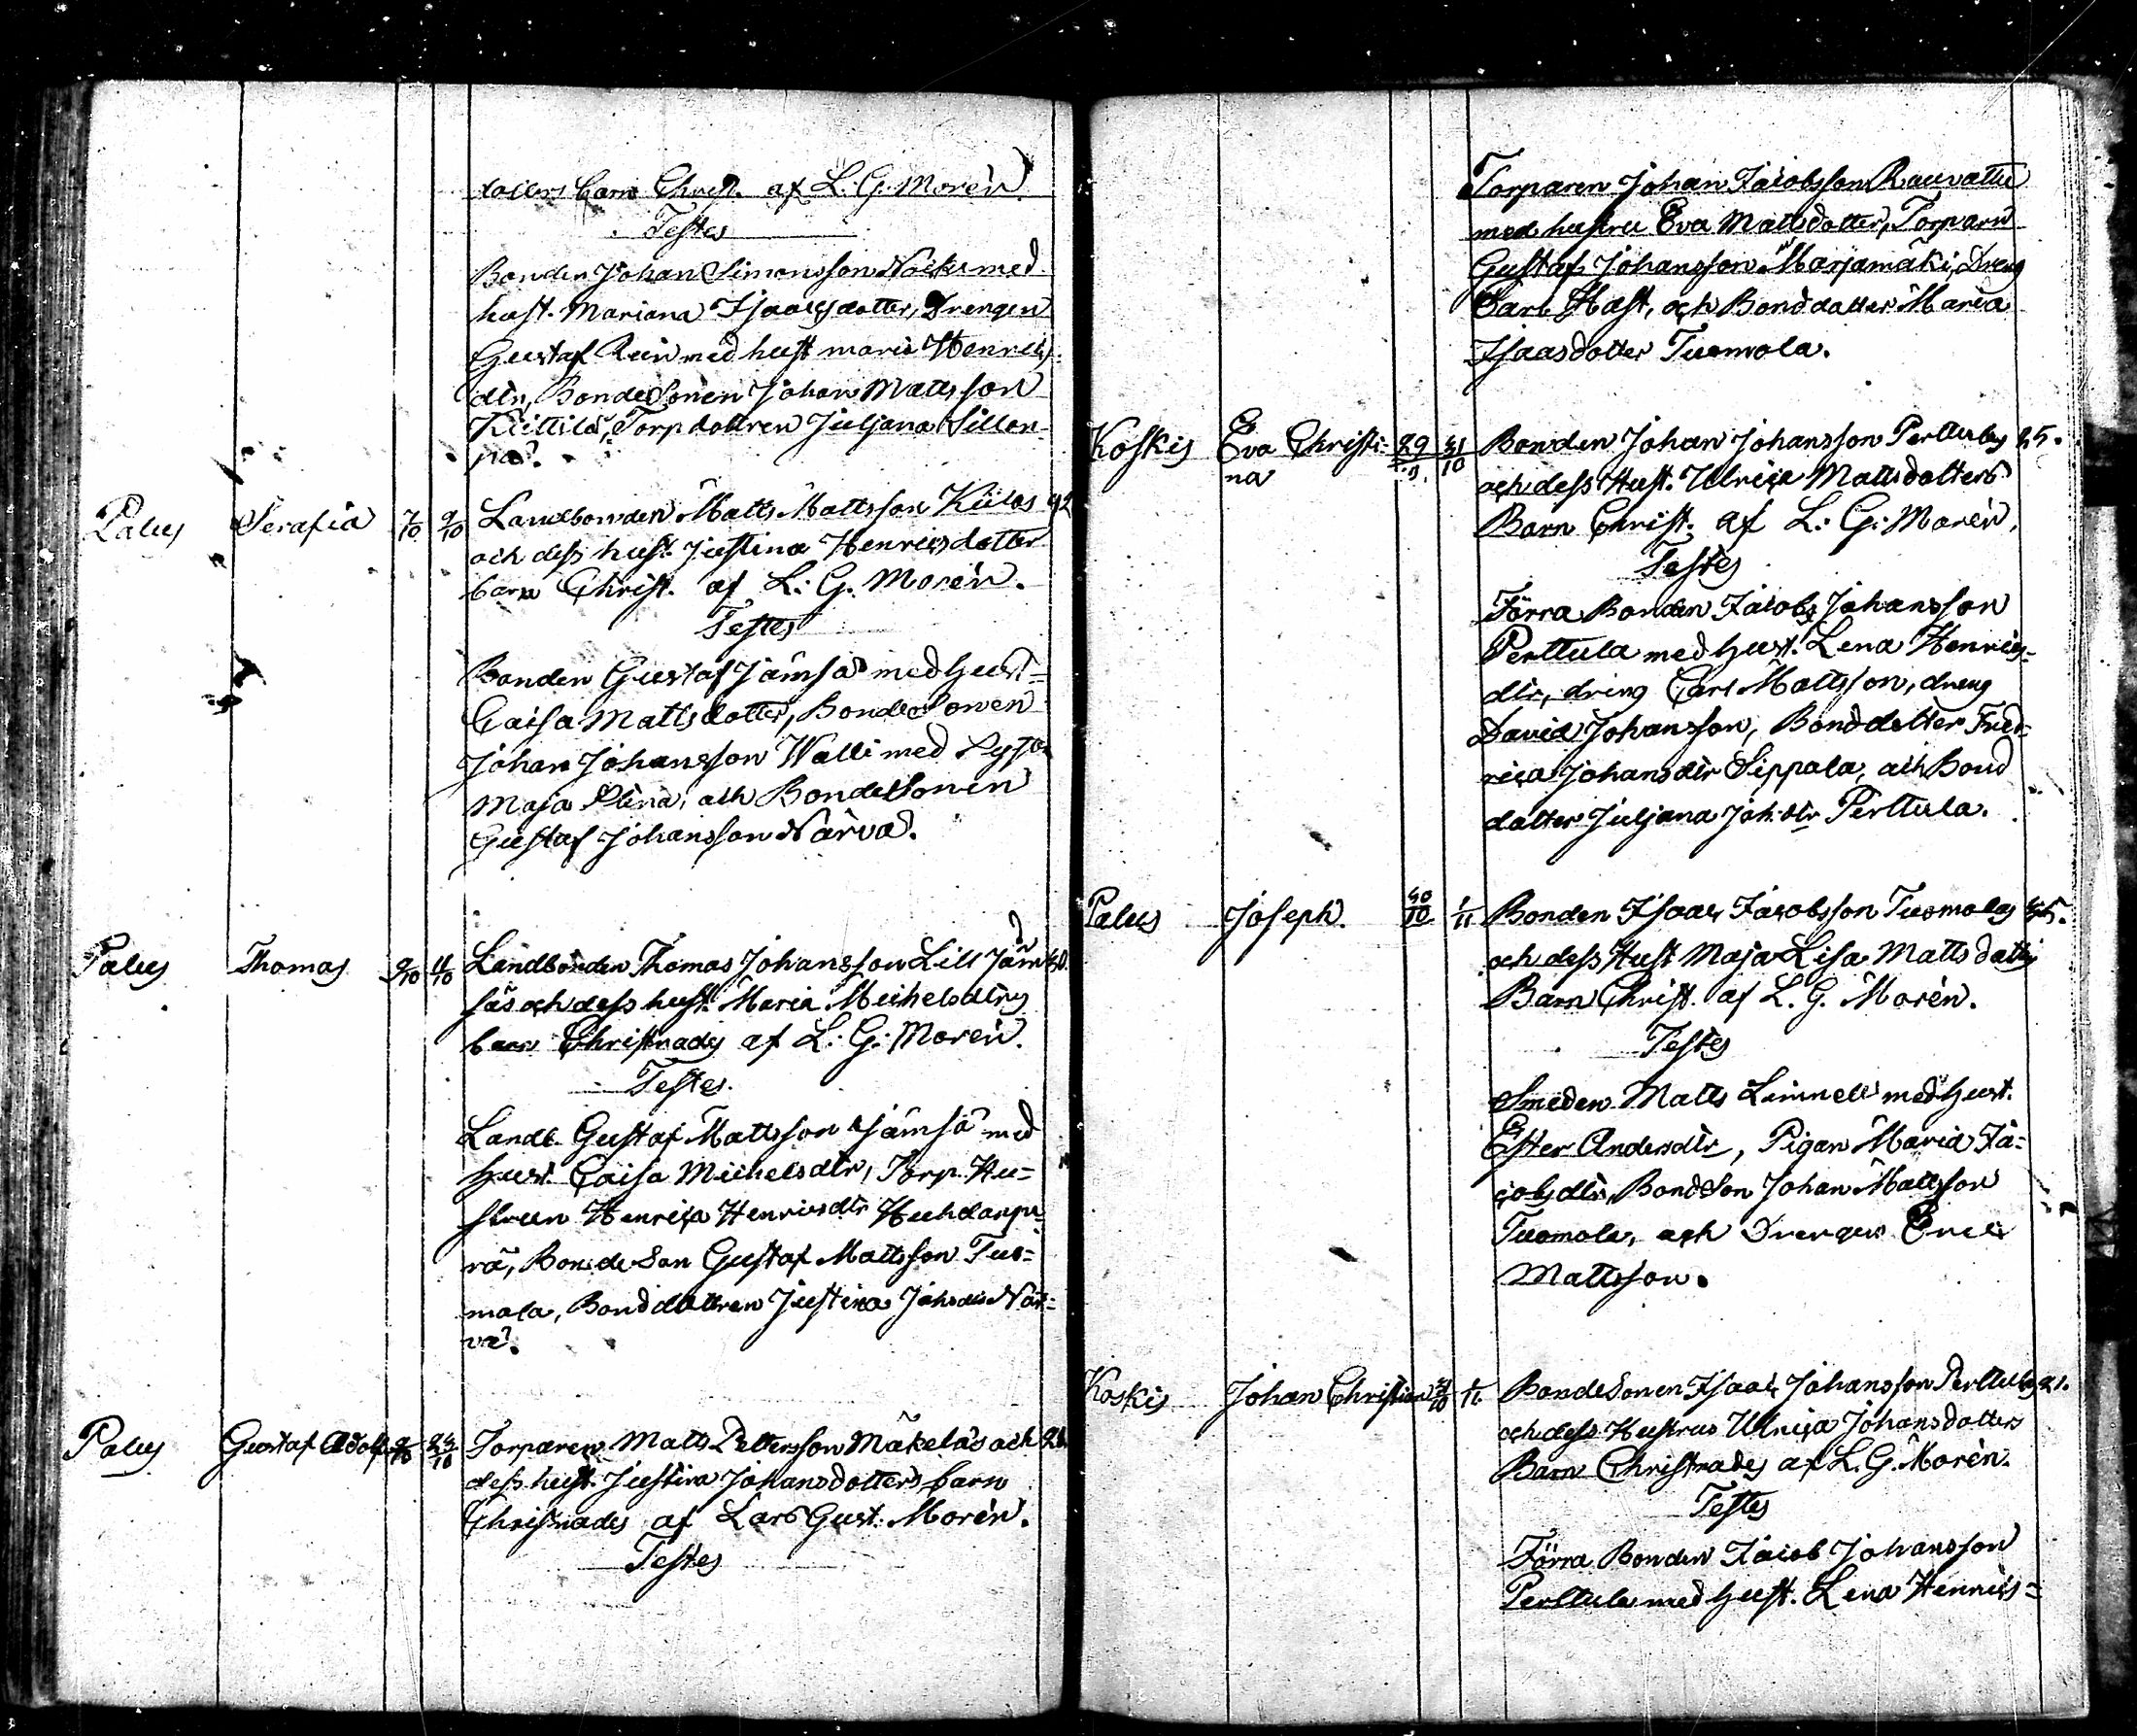 dotters barn Christ. af L. G. Morén
Testes
Bonden Johan Simonsson med
hust. Mariana Isaacsdotter, Drengen
Gustaf med hust maria Henrics
dtr, Bondesonen Johan Mattsson
Torpdottren Juljana Sillan-
pä.
Palus Serafia 7/10 9/10 Landbonden Matts Mattsson Kiilas 42
och dess hust. Justina Henricsdotter
barn Christ. af L. G. Morén.
Testes
Bonden Gustaf Jämsä med hust=
Caisa Mattsdotter, Bondesonen
Johan Johansson Walli med
Maja Lena, och Bondesonen
Gustaf Johansson Närvä.
Palus Thomas 9/10 11/10 Landbonden Thomas Johansson Lill Jäm
säs och dess hust. Maria Michelsdtrs
barn Christnades af L: G: Morén.
Testes.
Landb. Gustaf Mattsson Jämsä med
hust. Caisa Michelsdtr, Torp. Hu=
strun Henrica Henricsdtr Huhdanpe
rä, Bonde Son Gustaf Mattsson Tuo=
mola, Bonddottren Justina Johsdtr När=
vä.
Palus Gustaf Adolf 24/10 Torparen Matts Pettersson Mäkeläs och
dess hust. Justina Johansdotters barn
Christnades af Lars Gust. Morén.
Testes
Torparen Johan Jacobsson Rauvattu
med hustru Eva Mattsdotter, Torparn
Gustaf Johansson Marjamäki, Dreng
Carl Hast, och Bonddotter Maria
Isaacsdotter Tuomola.
Koskis Eva Christi- 29 31/10 Bonden Johan Johansson Perttulas 25.
na och dess Hust. Ulrica Mattsdotters
Barn Christ. af L: G: Morén.
Testes
Förra Bonden Jacob Johansson
Perttula med hust. Lena Henrics=
dtr, dreng Carl Mattsson, dreng
David Johansson, Bonddotter Fred=
rica Johansdtr Sippala, och Bond
dotter Juljana Joh:dtr Perttula.
Palus Joseph. 30/10 1/11 Bonden Isaac Jacobsson Tuomolas 35.
och dess Hust Maja Lisa Mattsdotters
Barn Christ. af L. G. Morén.
Testes
Smeden Matts Linnell med hust.
Ester Andersdtr, Pigan Maria Ja=
cobsdtr, Bondson Johan Mattsson
Tuomola, och Drengen Eric
Mattsson.
Koskis Johan Christian 31/10 1/11 Bondesonen Isaac Johansson Perttulas 21.
och dess Hustrus Ulrica Johansdotters
Barn Christnades af L. G. Morén.
Testes
Förra Bonden Jacob Johansson
Perttula med hust. Lena Henrics=